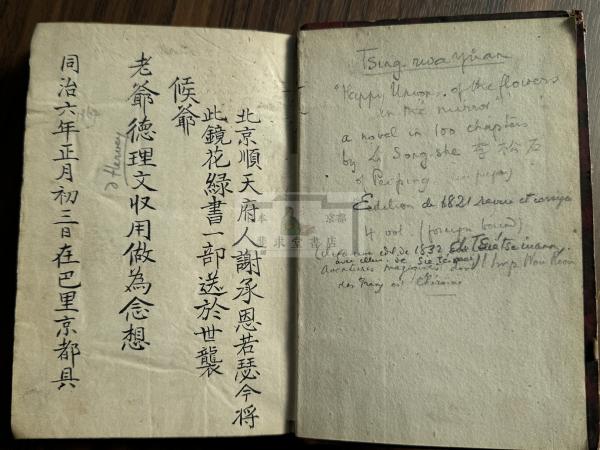 北京順天府人謝承恩若瑟今將
此鏡花緣書一部送於世襲
候爺
老爺德理文収用做為念想
d'Hervey
同治六年正月初三日在巴里京都具
Tsing-hwa yüan
"Happy Unions of the flowers
in the mirror"
a novel in 100 chapters
by Li Song-she 李松石
of Peiping
Edition de 1821 revue et corrigée
4 vol. (foreign bound)
de 1832
avec celui de
Aventures
des Tang en Chinois
本 京都
堂書店